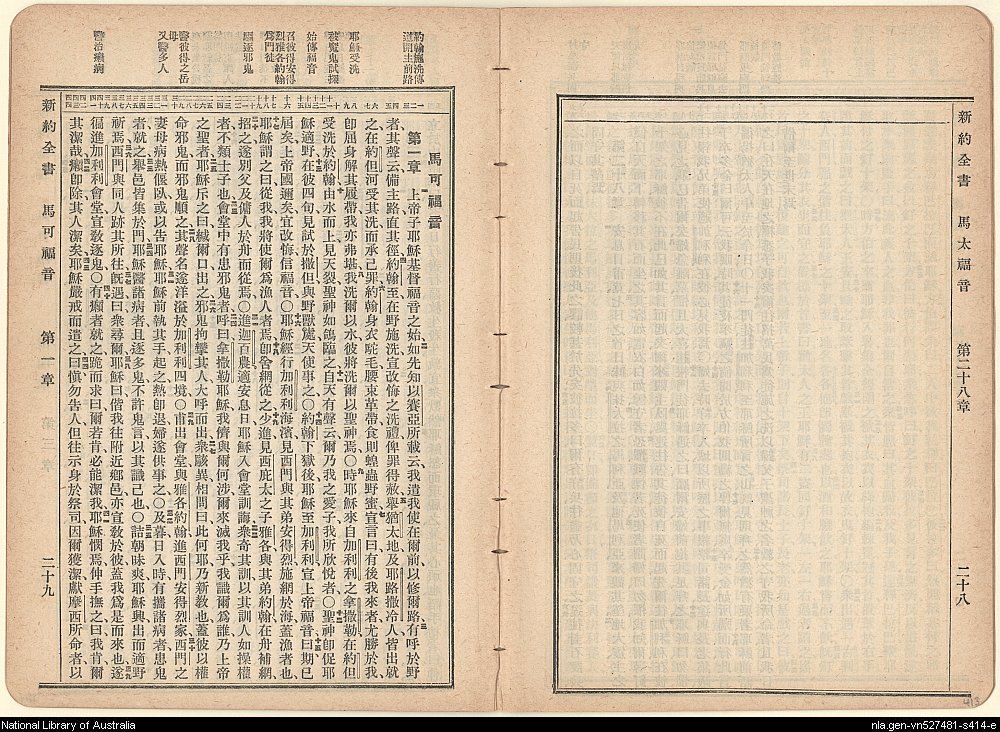 新約全書 馬太福音 第二十八章 二十八
約翰施洗傳
道開主前路
耶穌受洗
被魔鬼試探
始傳福音
召彼得安得
烈雅各約翰
爲門徒
驅逐邪鬼
醫彼得之岳
母
又醫多人
醫治癩病
馬可福音
第一章 上帝子耶穌基督福音之始如先知以賽亞所載云我遣我使在爾前以修爾路有呼於野
者其聲云備主路直其徑約翰至在野施洗宣改悔之洗禮俾罪得赦舉猶太地及耶路撒冷人皆出就
之在約但河受其洗而承己罪約翰身衣駝毛腰束革帶食則蝗蟲野蜜宣言曰有後我來者尤勝於我
卽屈身解其履帶我亦弗堪我洗爾以水彼將洗爾以聖神焉〇時耶穌來自加利利之拿撒勒在約但
受洗於約翰由水而上見天裂聖神如鴿臨之自天有聲云爾乃我之愛子我所欣悅者〇聖神卽促耶
穌適野在彼四旬見試於撒但與野獸處天使事之〇約翰下獄後耶穌至加利利宣上帝福音曰期已
屆矣上帝國邇矣宜改悔信福音〇耶穌經行加利利海濱見西門與其弟安得烈施網於海蓋漁者也
耶穌謂之曰從我我將使爾爲漁人者焉卽舍網從之少進見西庇太之子雅各與其弟約翰在舟補網
招之遂別父及傭人於舟而從焉〇進迦百農適安息日耶穌入會堂訓誨衆奇其訓以其訓人如操權
者不類士子也會堂中有患邪鬼者呼曰拿撒勒耶穌我儕與爾何涉爾來滅我乎我識爾爲誰乃上帝
之聖者耶穌斥之曰緘爾口出之邪鬼拘攣其人大呼而出衆駭異相問曰此何耶乃新教也蓋彼以權
命邪鬼而邪鬼順之其聲名遂洋溢於加利利四境〇甫出會堂與雅各約翰進西門安得烈家西門之
妻母病熱偃臥或以告耶穌耶穌前執其手起之熱卽退婦遂供事之〇及暮日入時有攜諸病者患鬼
者就之舉邑皆集於門耶穌醫諸病者且逐多鬼不許鬼言以其識己也〇詰朝昧爽耶穌興出而適野
祈焉西門與同人跡其所往旣遇曰衆尋爾耶穌曰偕我往附近鄉邑亦宣敎於彼蓋我爲是而來也遂
徧進加利利會堂宣敎逐鬼〇有癩者就之跪而求曰爾若肯必能潔我耶穌憫焉伸手撫之曰我肯爾
其潔哉癩卽除其人潔矣耶穌嚴戒而遣之曰愼勿告人但往示身於祭司因爾獲潔獻摩西所命者以
新約全書 馬可福音 第一章 二十九
National Library of Australia
nla.gen-vn527481-s414-e